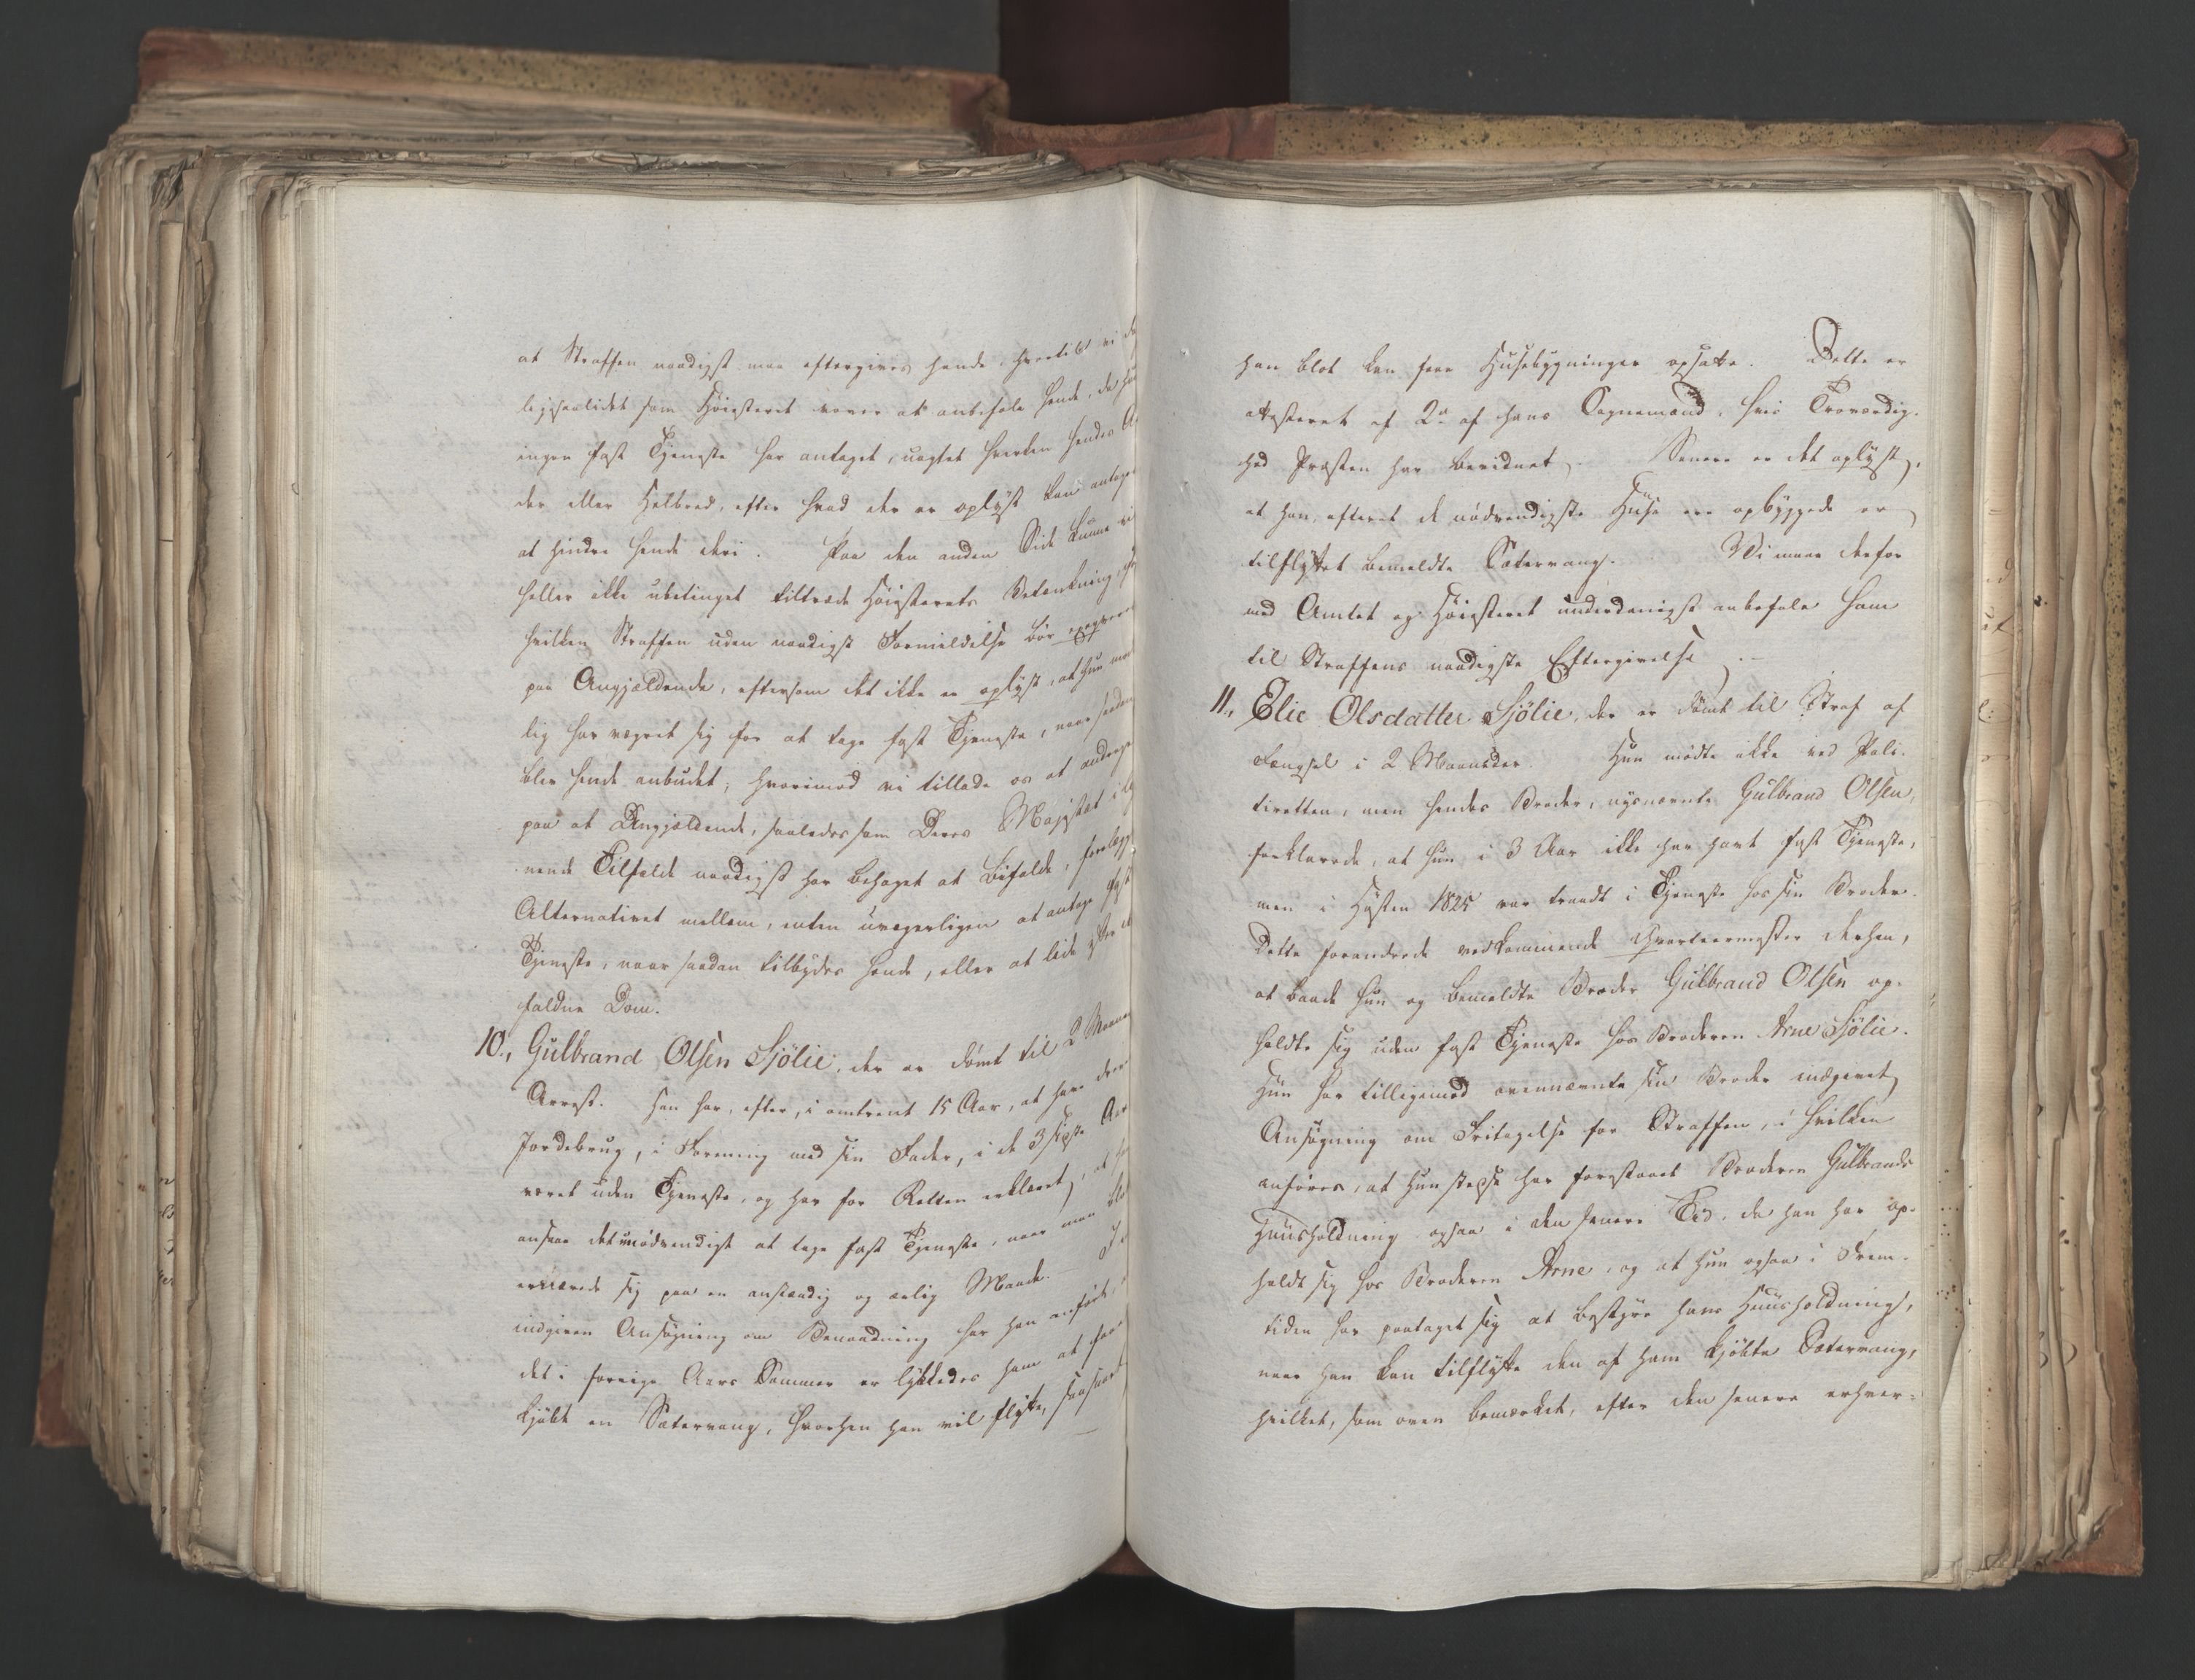 at Straffen naadigst maa eftergives hende, hvortil vi
ligesaalidet som Höiesteret vover at anbefale hende, da hun
ingen fast Tjeneste har antaget, uagtet hverken hendes
der eller Helbred, efter hvad der er oplyst kan antages
at hindre hende deri. Paa den anden Side kunne vi
heller ikke ubetinget tiltræde Höiesterets Betænkning,
hvilken Straffen uden naadigst Formildelse bör exeqveres
paa Angjældende, eftersom det ikke er oplyst, at hun
lig har vægret sig for at tage fast Tjeneste, naar saadan
blev hende anbudet, hvorimod vi tillade os at andrage
paa at Angjældende, saaledes som Deres Majestæt i
nende Tilfælde naadigst har behaget at bifalde, forelægges
Alternativet mellem, enten uvægerligen at antage fast
Tjeneste, naar saadan tilbydes hende, eller at lide efter
faldne Dom.
10., Gulbrand Olsen Sjölie, der er dömt til 2 Maaneders
Arrest. Han har, efter, i omtrent 15 Aar, at have drevet
Jordebrug, i Forening med sin Fader, i de 3 sidste Aar
været uden Tjeneste, og har for Retten erklæret, at han
ansaae det unödvendigt at tage fast Tjeneste, naar man blot
ernærede sig paa en anstændig og ærlig Maade. I
indgiven Ansögning om Benaadning har han anfört,
det i forrige Aars Sommer er lykkedes ham at faae
kjöbt en Sætervang, hvorhen han vil flytte, saasnart
han blot kan faae Husebygninger opsatte. Dette er
attesteret af 2de af hans Sognemænd, hvis Troværdig-
hed Præsten har bevidnet. Senere er det oplyst,
at han, efterat de nödvendigste Huse ere opbyggede er
tilflyttet bemeldte Sætervang. Vi maae derfor
med Amtet og Höiesteret underdanigst anbefale ham
til Straffens naadigste Eftergivelse.
11., Elie Olsdatter Sjölie, der er dömt til Straf af
Fængsel i 2 Maaneder. Hun mödte ikke ved Poli-
tiretten, men hendes Broder, nysnævnte Gulbrand Olsen,
forklarede, at hun i 3 Aar ikke har havt fast Tjeneste,
men i Hösten 1825 var traadt i Tjeneste hos sin Broder.
Dette forandrede vedkommende Qvarteermester derhen,
at baade hun og bemeldte Broder Gulbrand Olsen op-
holdte sig uden fast Tjeneste hos Broderen Arne Sjölie.
Hun har tilligemed ovennævnte sin Broder indgivet
Ansögning om Fritagelse for Straffen, i hvilken
anföres, at hun stedse har forestaaet Broderen Gulbrands
Huusholdning ogsaa i den senere Tid, da han har op-
holdt sig hos Broderen Arne, og at hun ogsaa i Frem-
tiden har paataget sig at bestyre hans Huusholdning,
naar han kan tilflytte den af ham kjöbte Sætervang,
hvilket, som oven bemærket, efter den senere erhver-